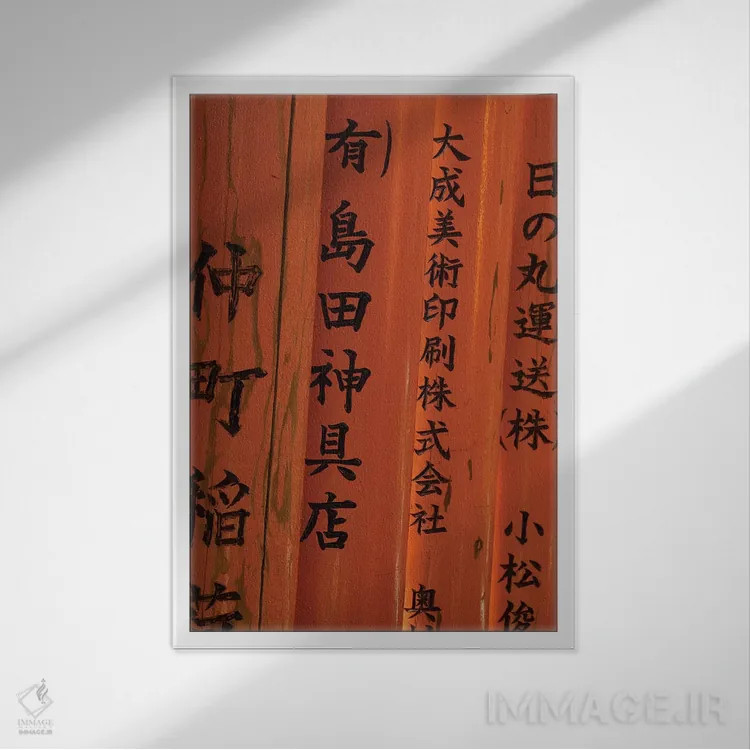 日の丸運送(株) 小松俊
大成美術印刷株式会社 奥
有)島田神具店
仲町稲
IMMAGE
IMMAGE.IR
IMMAGE.IR